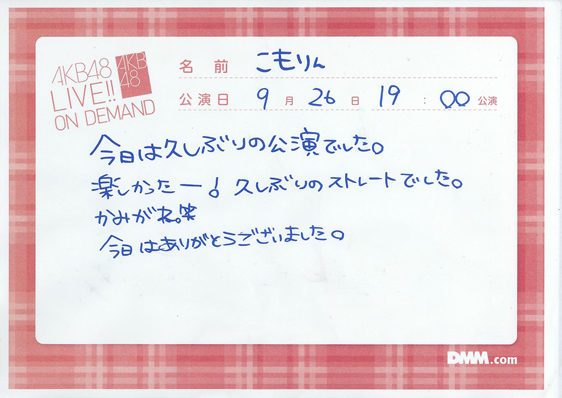 AKB48
LIVE!!
ON DEMAND
AKB
48
名前 こもりん
公演日 9月26日 19:00公演
今日は久しぶりの公演でした。
楽しかったー! 久しぶりのストレートでした。
かみがね。笑
今日はありがとうございました。
DMM.com